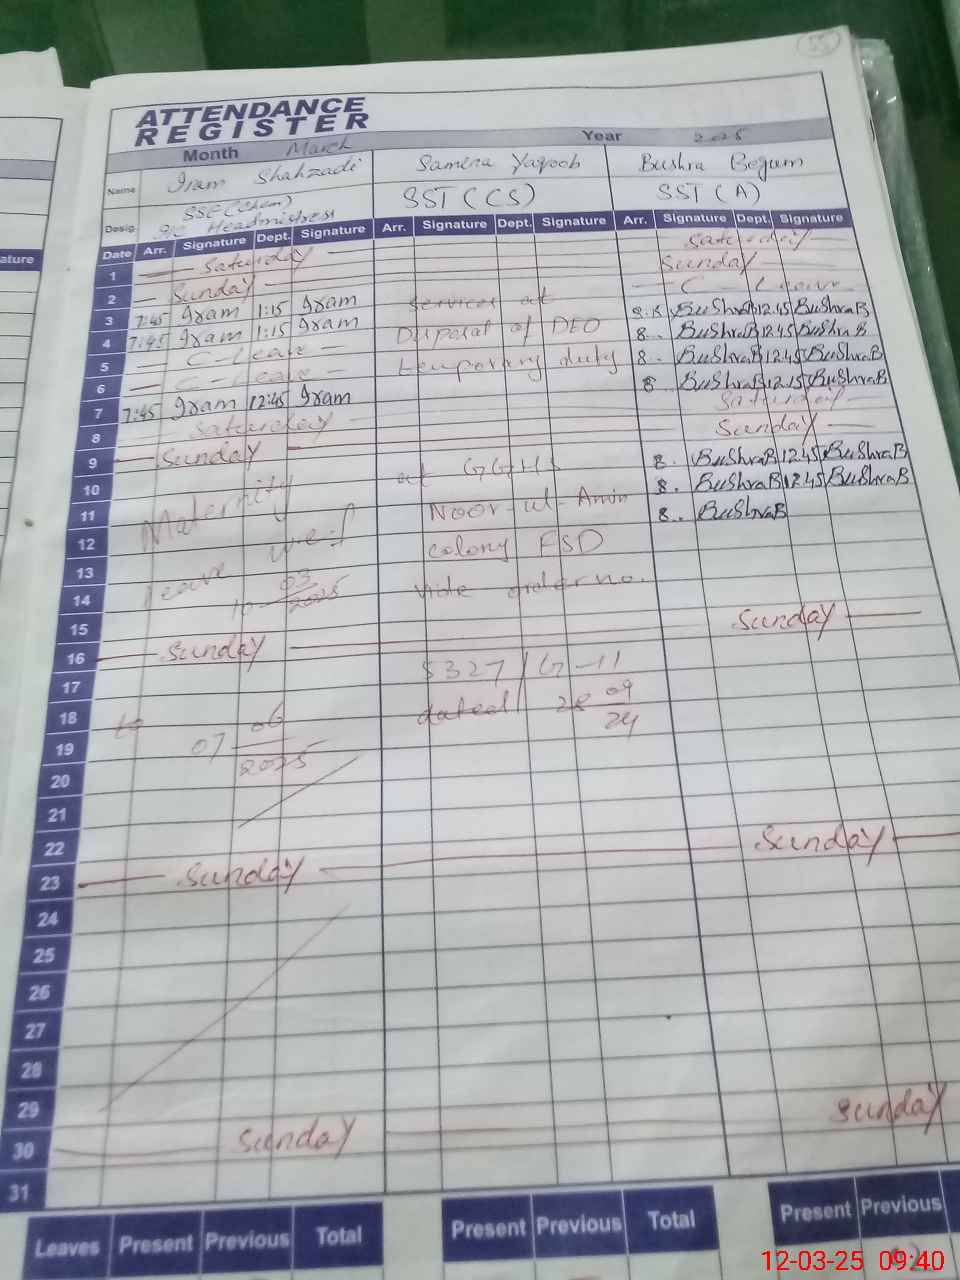 55
ATTENDANCE
REGISTER
Month March Year 2025
Name Iram Shahzadi Samena Yaqoob Bushra Begum
Desig. SSE (Chem) SST (CS) SST (A)
I/C Headmistress
Date Arr. Signature Dept. Signature Arr. Signature Dept. Signature Arr. Signature Dept. Signature
1 Saturday Saturday
2 Sunday Sunday
3 7:45 Iram 1:15 Iram Services at C-Leave
4 7:45 Iram 1:15 Iram Disposal of DEO 8. BushraB 12.45 BushraB
5 C-Leave temporary duty 8. BushraB 12.45 BushraB
6 C-Leave 8. BushraB 12.45 BushraB
7 7:45 Iram 12:45 Iram 8. BushraB 12.15 BushraB
8 Saturday Saturday
9 Sunday Sunday
10 Maternity at GGHS 8. BushraB 12.45 BushraB
11 Noor-ul-Amin 8. BushraB 12.45 BushraB
12 leave w.e.f colony FSD 8.. BushraB
13
14 10-03/2025 vide order no.
15
16 Sunday Sunday
17 5327/G-11
18 to dated 28 09/24
19 07 06/2025
20
21
22
23 Sunday Sunday
24
25
26
27
28
29
30 Sunday Sunday
31
Leaves Present Previous Total Present Previous Total Present Previous
12-03-25 09:40
ature